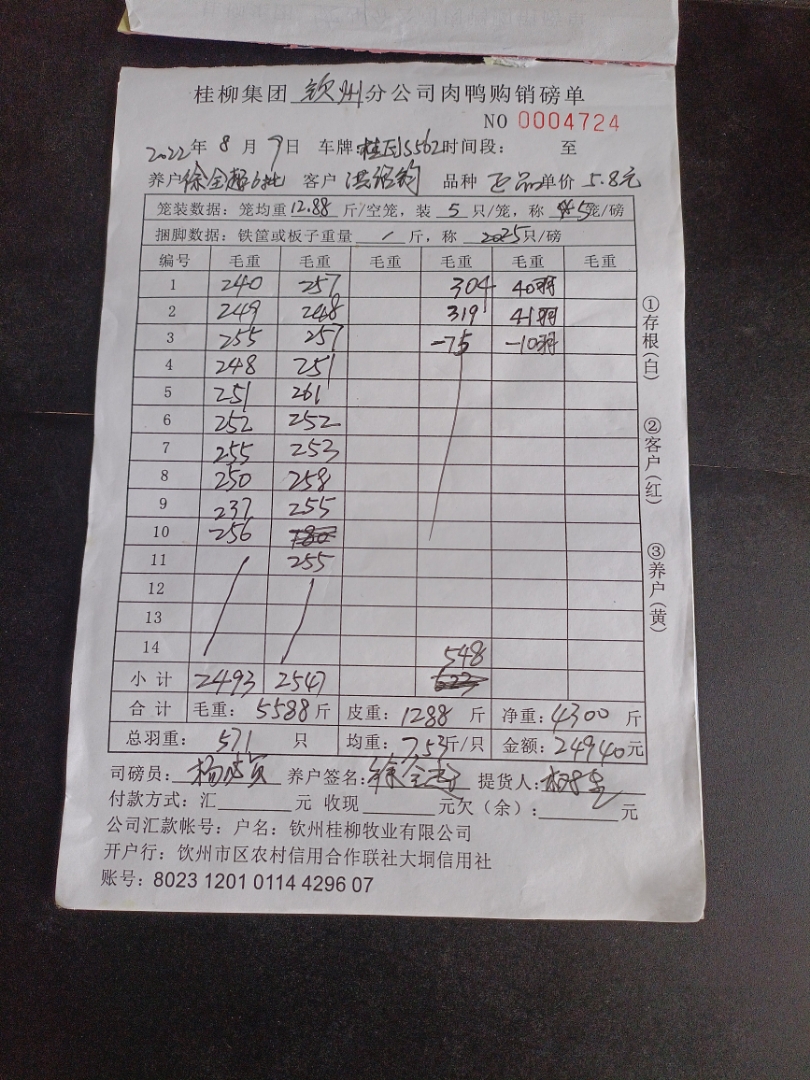 桂柳集团 钦州 分公司肉鸭购销磅单
NO 0004724
2022年 8 月 9 日 车牌: 时间段： 至
养户 客户 品种 正品 单价 5.8元
笼装数据：笼均重12.88 斤/空笼，装 5 只/笼，称 5笼/磅
捆脚数据：铁筐或板子重量 / 斤，称 25只/磅
编号 毛重 毛重 毛重 毛重 毛重 毛重
1 240 257 304 40羽
2 249 248 319 41羽
3 255 257 -75 -10羽
4 248 251
5 251 261
6 252 252
7 255 253
8 250 258
9 237 255
10 256
11 255
12
13
14 548
小 计 2493 2547
合 计 毛重：5588斤 皮重：1288 斤 净重：4300 斤
总羽重： 571 只 均重：7.53斤/只 金额：24940元
司磅员： 养户签名： 提货人：
付款方式：汇 元 收现 元欠（余）： 元
公司汇款帐号：户名：钦州桂柳牧业有限公司
开户行：钦州市区农村信用合作联社大垌信用社
账号：8023 1201 0114 4296 07
①存根(白)
②客户(红)
③养户(黄)